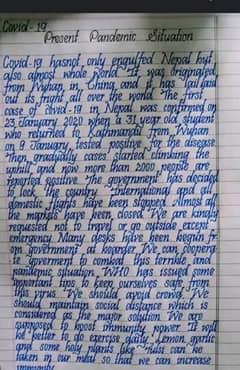 Covid-19
Present Pandemic Situation
Covid-19 has not only engulfed Nepal but
also almost whole world. It was originated
from Wuhan, in China, and it has
out its fright all over the world. The first
case of covid-19 in Nepal was confirmed on
23 January 2020 when a 31 year old student
who returned to Kathmandu from Wuhan
on 9 January, tested positive for the disease.
Then gradually cases started climbing the
uphill and now more than 2000 people are
reported positive. The government has decided
to lock the country. International and all
domestic flights have been stopped. Almost all
the markets have been closed. We are kindly
requested not to travel or go outside except
emergency. Many desks have been begun
government at border. We can
government to combat this terrible and
pandemic situation. WHO has issued some
important tips to keep ourselves safe from
this virus. We should avoid crowd. We
should maintain social distance which is
considered as the major solution. We are
supposed to boost immunity power. It will
be better to do exercise daily. Lemon, garlic
and some holy plants like tulsi can be
taken in our meal so that we can increase
immunity